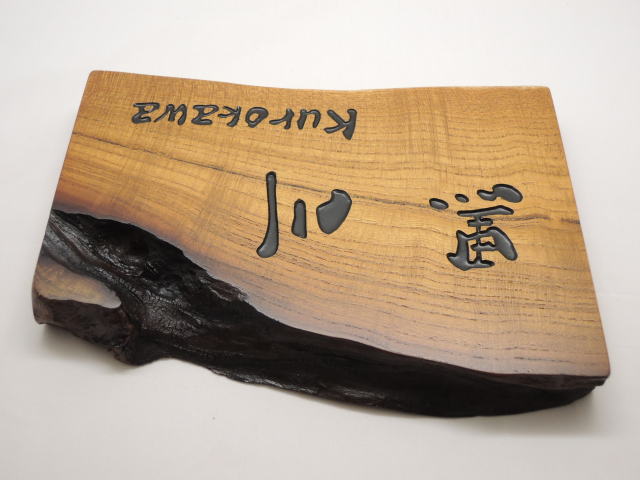 黒川
Kurokawa